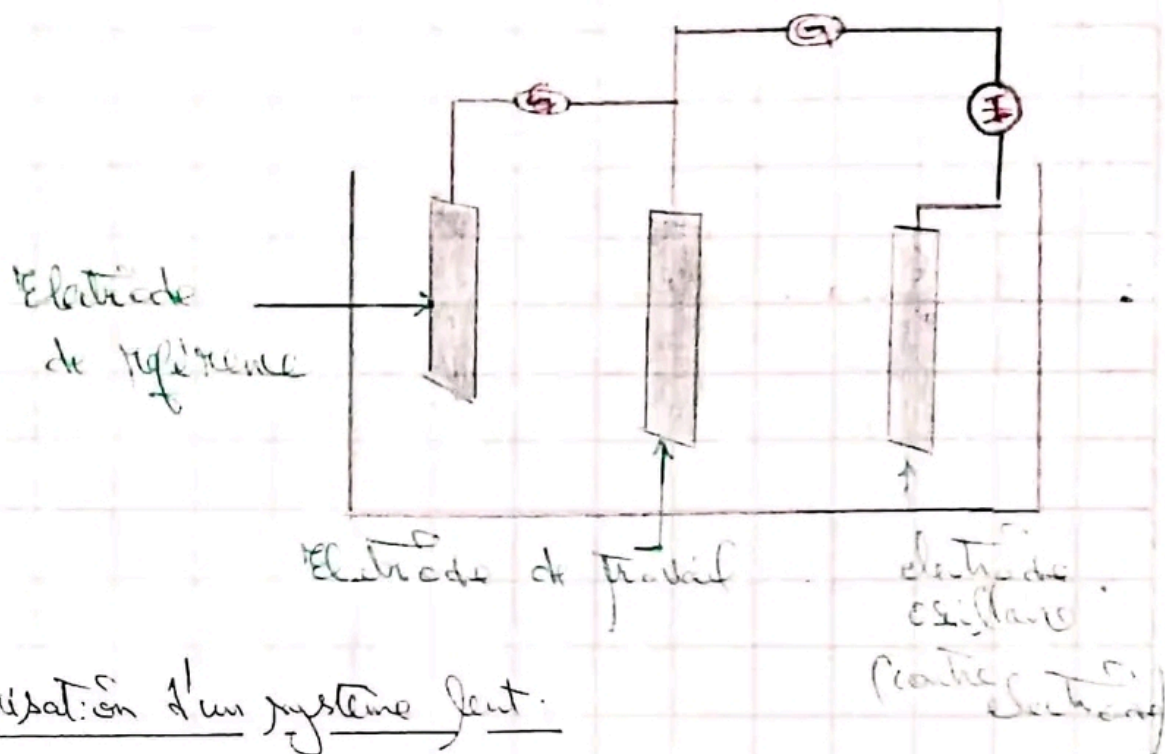 G
I
Electrode
de référence
Electrode de travail
électrode
électrode
isation d'un système lent.